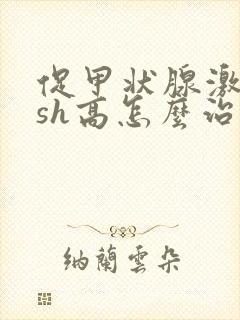 促甲状腺激
sh高怎麼治
納蘭雲朵